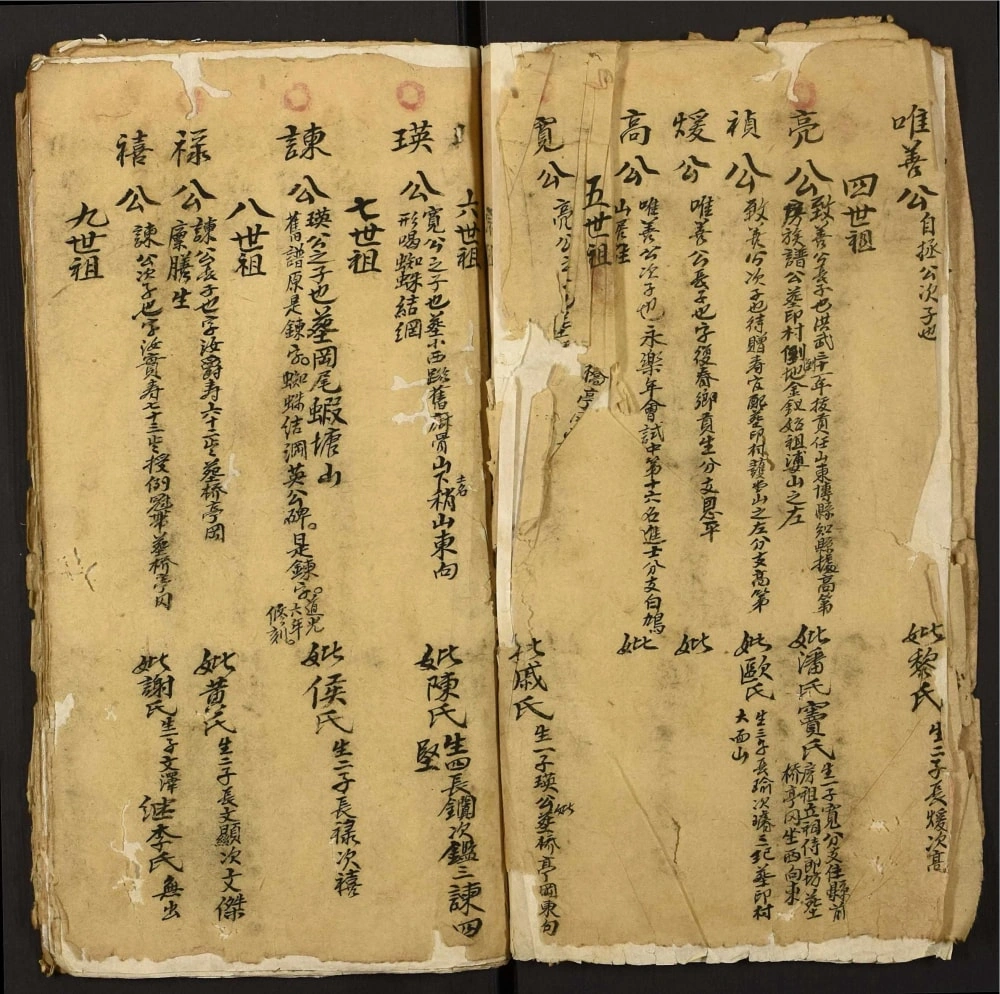 唯善公 自拯公次子也 妣黎氏 生二子長煖次高
四世祖
亮公 致善公長子也洪武三十一年拔貢任山東博縣知縣援高第
房族譜公葬印村倒地金釵始祖婆山之左
妣潘氏竇氏 生一子寬分支住縣前
房祖五祠侍郎坊葬
橋亭冈坐西向東
禎公 致善公次子也待贈春官配葬印村護堂山之左分支高第
妣歐氏 生三子長瑜次璠三玘葬印村
大面山
煖公 唯善公長子也字復春鄉貢生分支恩平 妣
高公 唯善公次子也永樂年會試中第十六名進士分支白鳩
山居住 妣
五世祖
寬公 亮公之子也
橋亭
妣戚氏 生一子瑛公妣葬桥亭岡東向
六世祖
瑛公 寬公之子也葬小西路舊廟骨山下土名稍山東向
形喝蜘蛛結網
妣陳氏 生四長鑭次鑑三諫四
堅
七世祖
諫公 瑛公之子也葬岡尾蝦塘山
舊譜原是鍊字蜘蛛結網英公碑。是鍊字。道光六年。修刻。
妣侯氏 生二子長祿次禧
八世祖
祿公 諫公長子也字汝爵寿六十二岁葬桥亭岡
廩膳生
妣黃氏 生二子長文顯次文傑
禧公 諫公次子也字汝賓寿七十三岁授例冠带葬桥亭冈
妣謝氏 生一子文澤 继李氏無出
九世祖